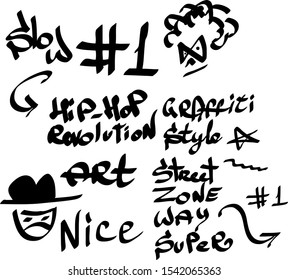 Slow #1
Hip-Hop
Revolution
Graffiti
Style
Art
Street
Zone
Way
Super
#1
Nice
shutterstock.com · 1542065363